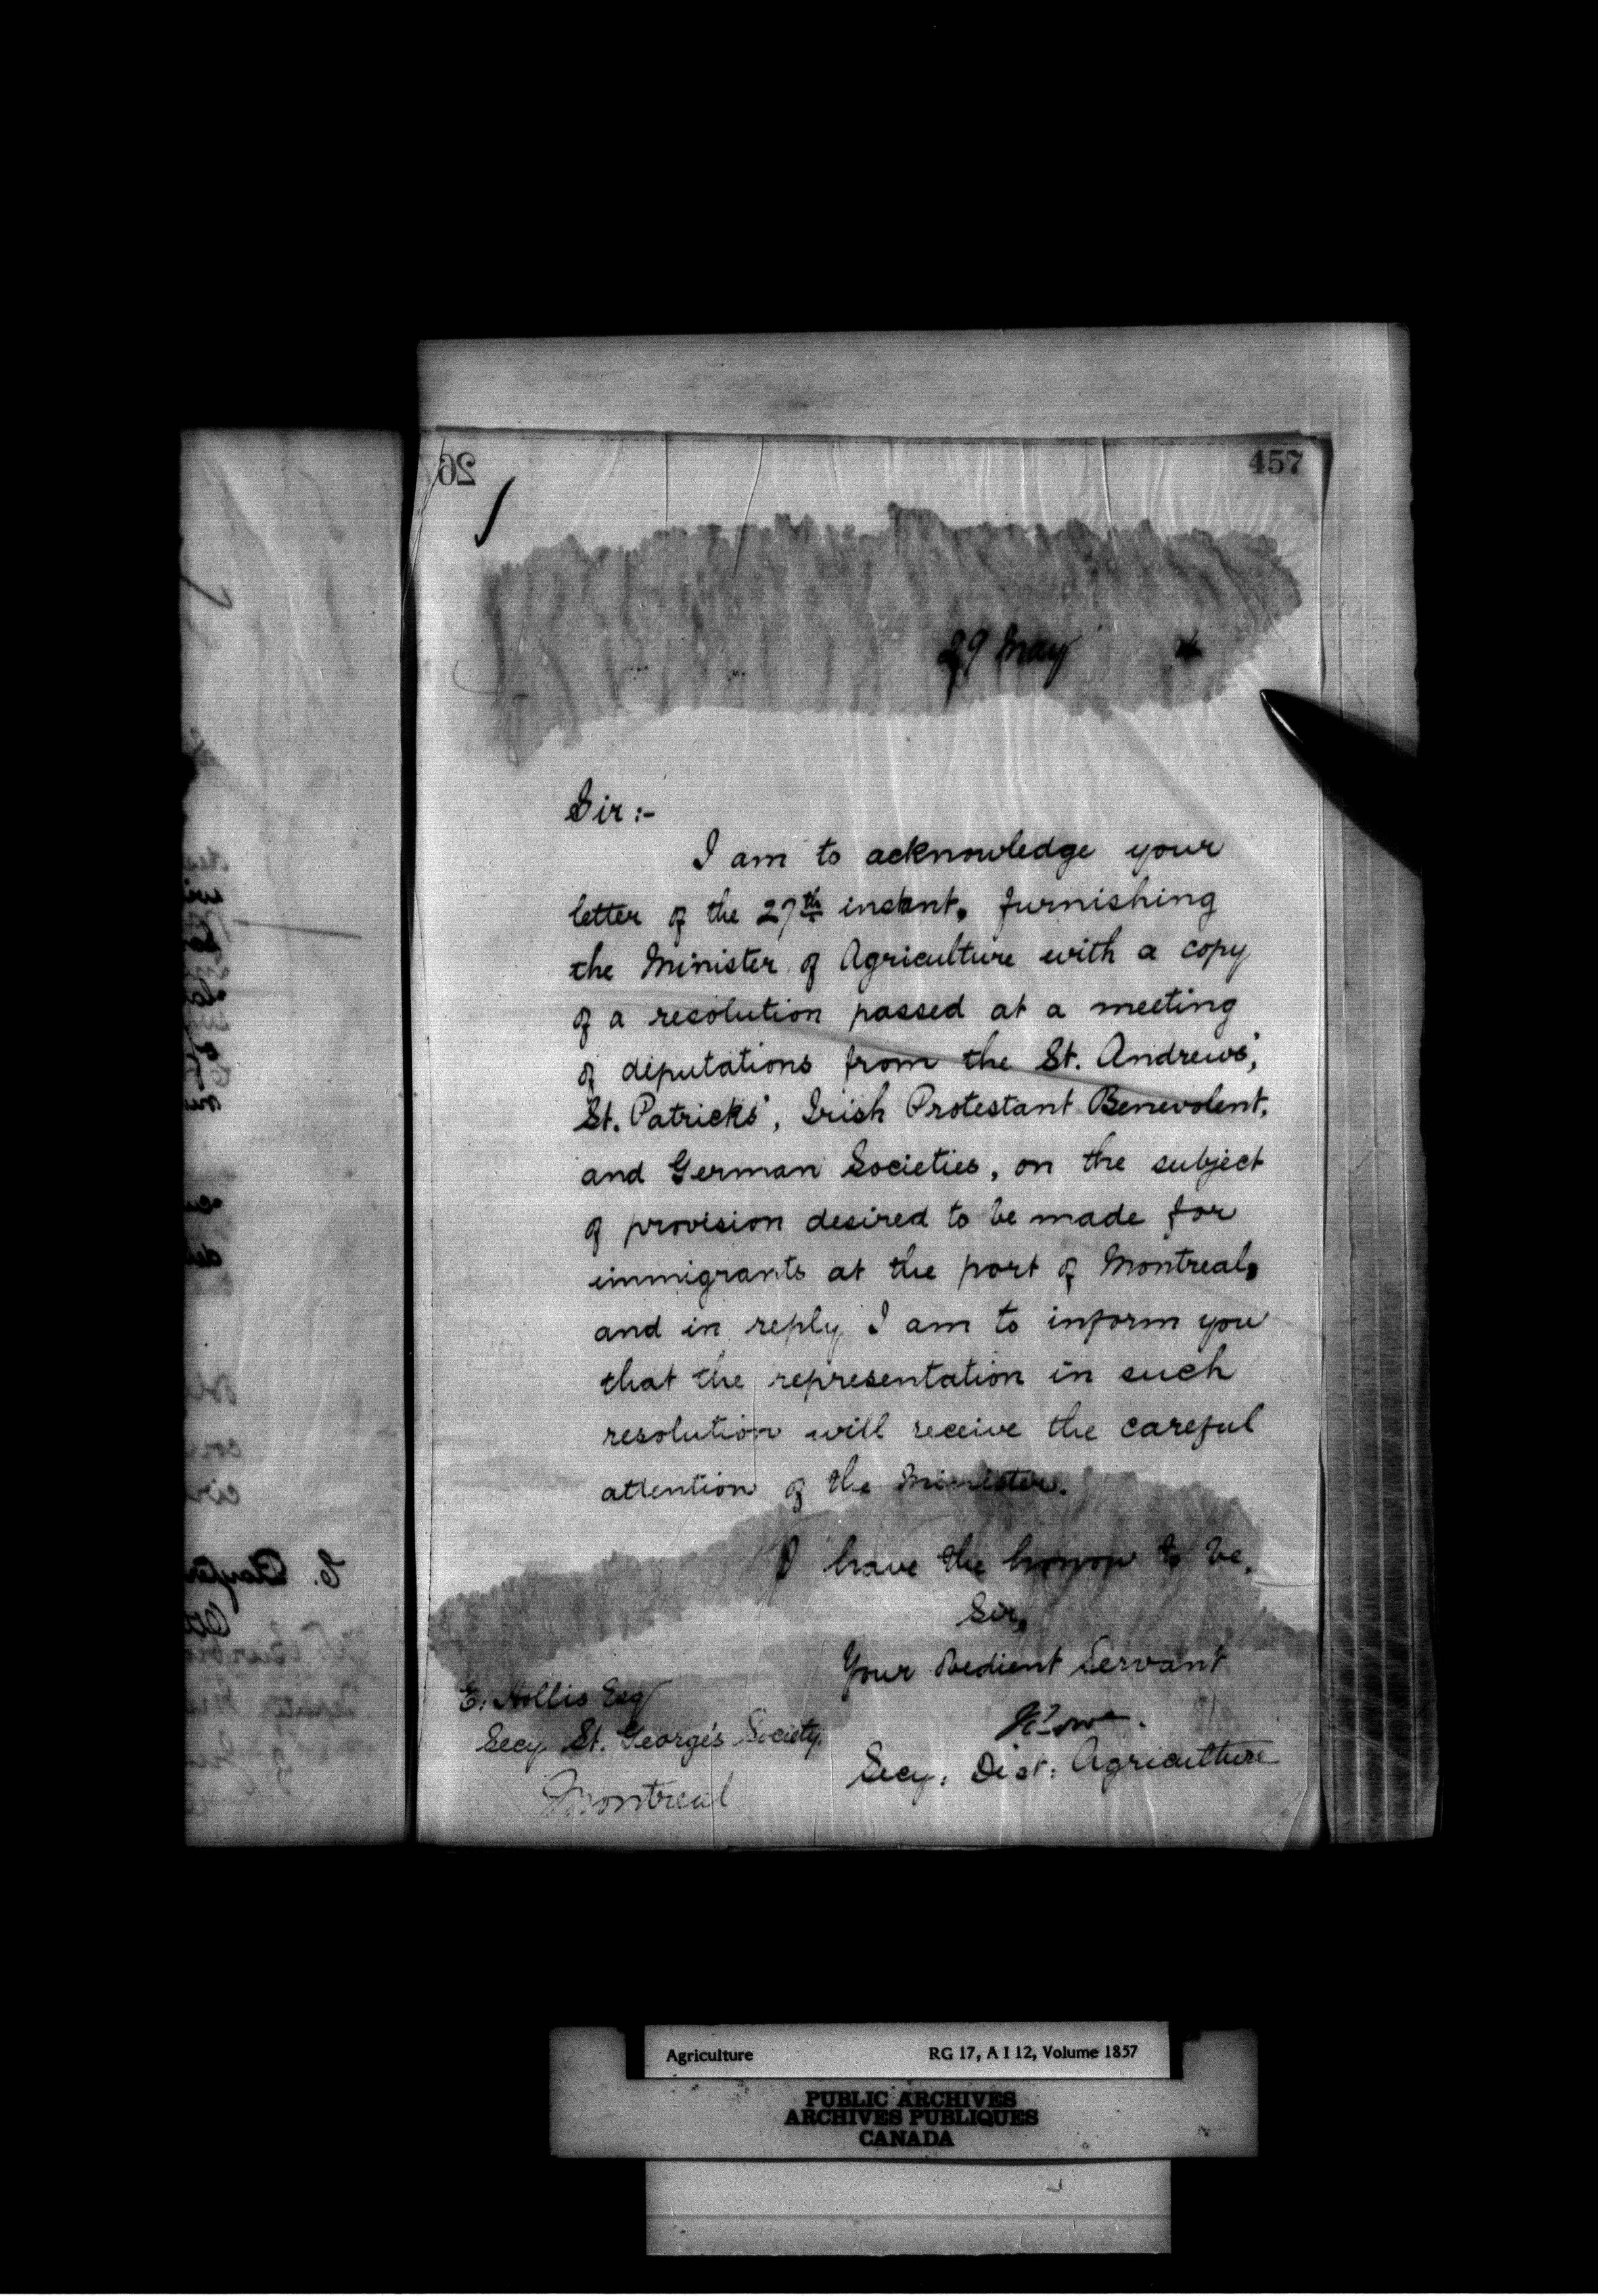 26
457
29 May 4
Sir:-
I am to acknowledge your
letter of the 27th instant, furnishing
the Minister of Agriculture with a copy
of a resolution passed at a meeting
of deputations from the St. Andrews',
St. Patricks', Irish Protestant Benevolent,
and German Societies, on the subject
of provision desired to be made for
immigrants at the port of Montreal,
and in reply I am to inform you
that the representation in such
resolution will receive the careful
attention of the Minister.
I have the honor to be,
Sir,
Your obedient Servant
E. Hollis Esq
Secy St. George's Society.
Montreal
J Lowe.
Secy: Dept: Agriculture
Agriculture RG 17, A I 12, Volume 1857
PUBLIC ARCHIVES
ARCHIVES PUBLIQUES
CANADA